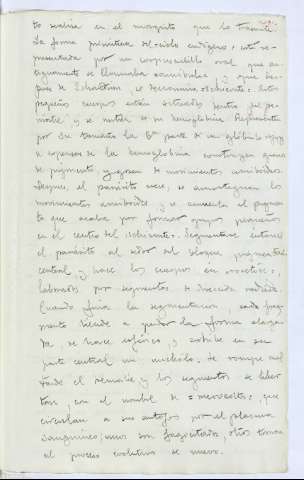 to realiza en el mosquito que lo transmite.
La forma primitiva del ciclo endógeno, está re-
presentada por un corpusculillo oval que an-
tiguamente se llamaba amiboides, y que des-
pues de Schaudinn, se denomina esquizonte. Estos
pequeños cuerpos están situados dentro del he-
matíe y se nutren de su hemoglobina. Representa
por su tamaño la 6ª parte de un glóbulo rojo y
a expensas de la hemoglobina construyen granos
de pigmento, y gozan de movimientos amiboides.
Despues, el parásito crece, se amortiguan los
movimientos amiboides y se aumenta el pigmen-
to que acaba por formar grupos pequeños
en el centro del esquizonte. Segmentase entonces
el parásito al rededor del bloque pigmentario
central y nace los cuerpos en roseta,
formados por segmentos de dirección radiada.
Cuando finaliza la segmentacion, cada frag-
mento tiende a perder la forma alarga-
da, se hace esférico, y exhibe en su
parte central un nucleolo. Se rompe mas
tarde el hematíe y los segmentos se liber-
tan, con el nombre de merozoitos, que
circulan a sus antojos por el plasma
sanguineo; unos son fagocitados, otros toman
el proceso evolutivo de nuevo.